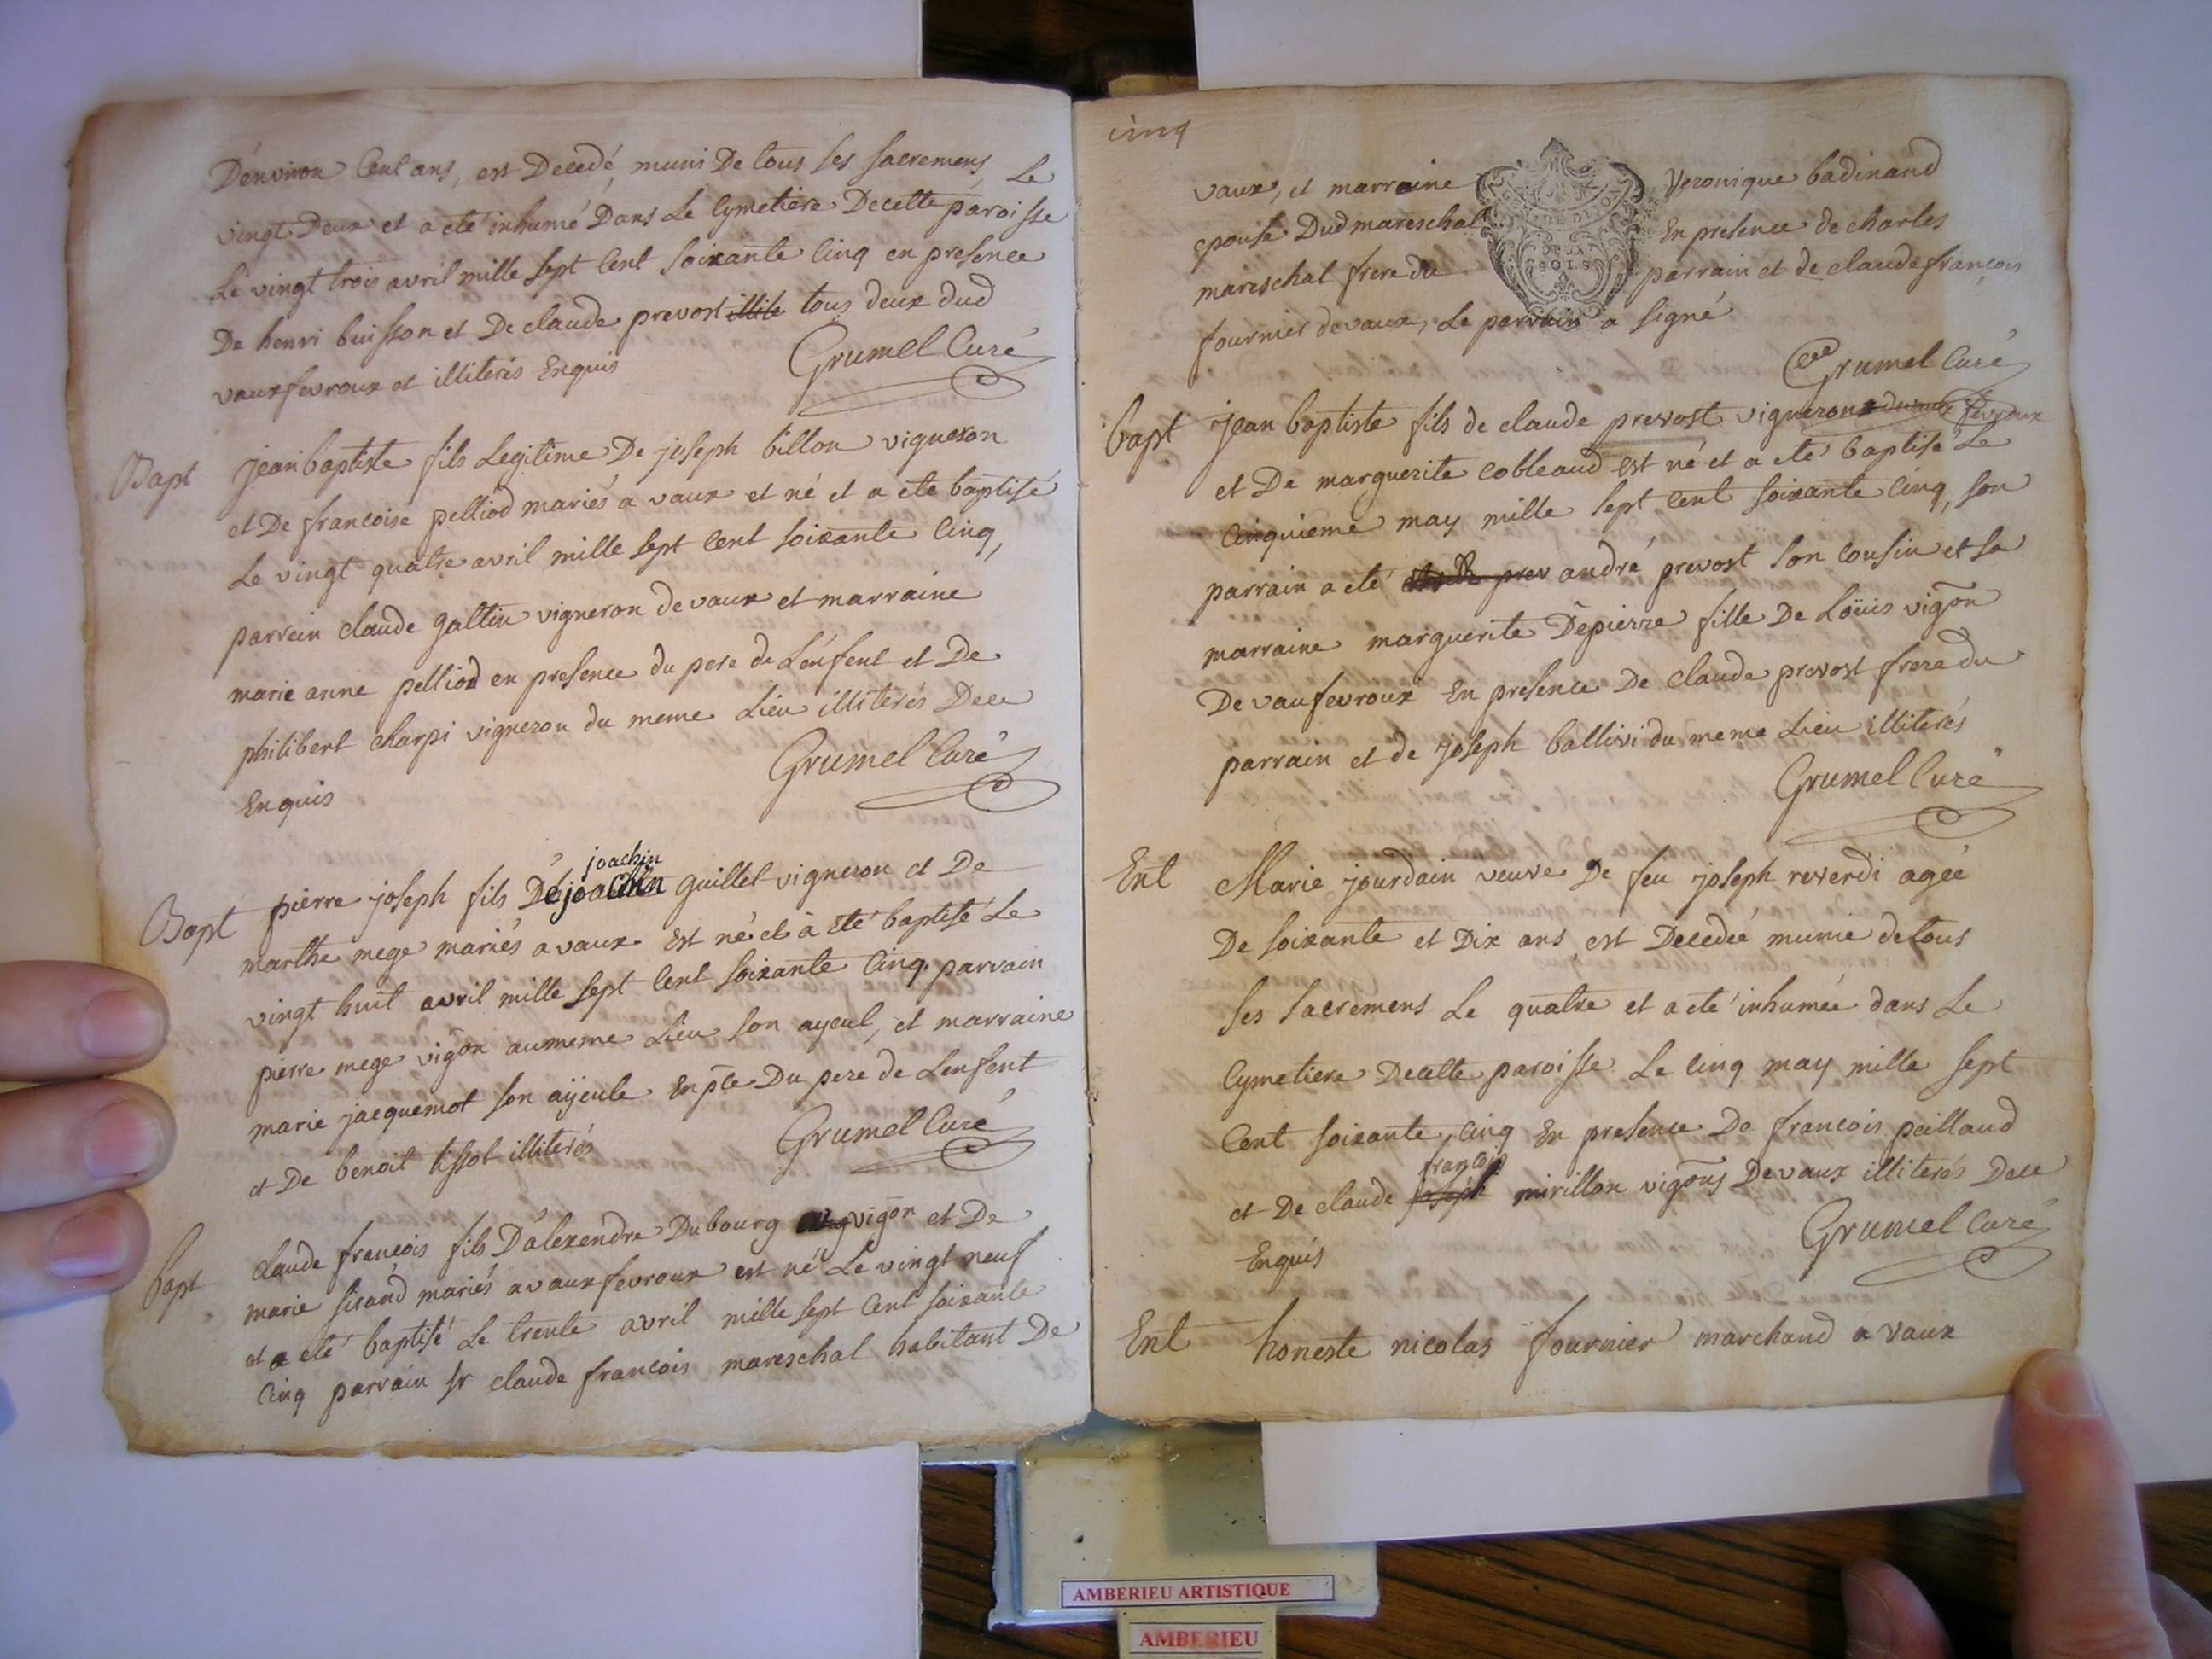 D'environ Cent ans, est Decedé, muni De tous ses sacremens, Le
vingt Deux et a eté inhumé Dans Le Cymetiere Decette paroisse
Le vingt trois avril mille sept Cent soixante Cinq en presence
De henri buisson et De claude prevost illite tous deux dud
vaux fevroux et illiterés Enquis
Grumel Curé
Bapt
jean baptiste fils Legitime De joseph billon vigneron
et De francoise pelliod mariés a vaux et né et a ete baptisé
Le vingt quatre avril mille sept Cent soixante Cinq,
parrein claude galtin vigneron de vaux et marraine
marie anne pelliod en presence du pere de L'enfent et De
philibert charpi vigneron du meme Lieu illiterés Dece
Enquis
Grumel Curé
joachin
Bapt
pierre joseph fils De joachin guillet vigneron et De
marthe mege mariés a vaux Est né et à Eté baptisé Le
vingt huit avril mille sept Cent soixante Cinq. parrain
pierre mege vigon au meme Lieu son ayeul, et marraine
marie jacquemot son aÿeule En pce Du pere de Lenfent
et De benoit tissot illiterés
Grumel Curé
bapt
claude francois fils D'alexendre Dubourg vigon et De
marie sirand mariés a vaux fevroux est né Le vingt neuf
et a eté baptisé Le trente avril mille sept Cent soixante
Cinq parrain sr claude francois mareschal habitant De
cinq
vaux, et marraine Veronique badinand
epouse Dud mareschal En presence de charles
mareschal frere du parrain et de claude françois
fournier de vaux, Le parrain a signé
DEUX
SOLS
Grumel Curé
bapt
jean baptiste fils de claude prevost vigneron de vaux fevroux
et De marguerite cobleaud est né et a eté baptisé Le
Cinquieme may mille sept Cent soixante Cinq, son
parrain a eté prev andré prevost son cousin et sa
marraine marguerite Depierre fille De Loüis vigon
De vaufevroux En presence De claude prevost frere du
parrain et de joseph ballivi du meme Lieu illiterés
Grumel Curé
Ent
Marie jourdain veuve De feu joseph reverdi agée
De soixante et Dix ans est Decedée munie de tous
ses sacremens Le quatre et a eté inhumée dans Le
Cymetiere Decette paroisse Le cinq may mille sept
Cent soixante, cinq En presence De francois paillaud
francois
et De claude joseph mirillon vigons De vaux illiterés Dece
Enquis
Grumel Curé
Ent
honeste nicolas fournier marchand a vaux
AMBERIEU ARTISTIQUE
AMBERIEU